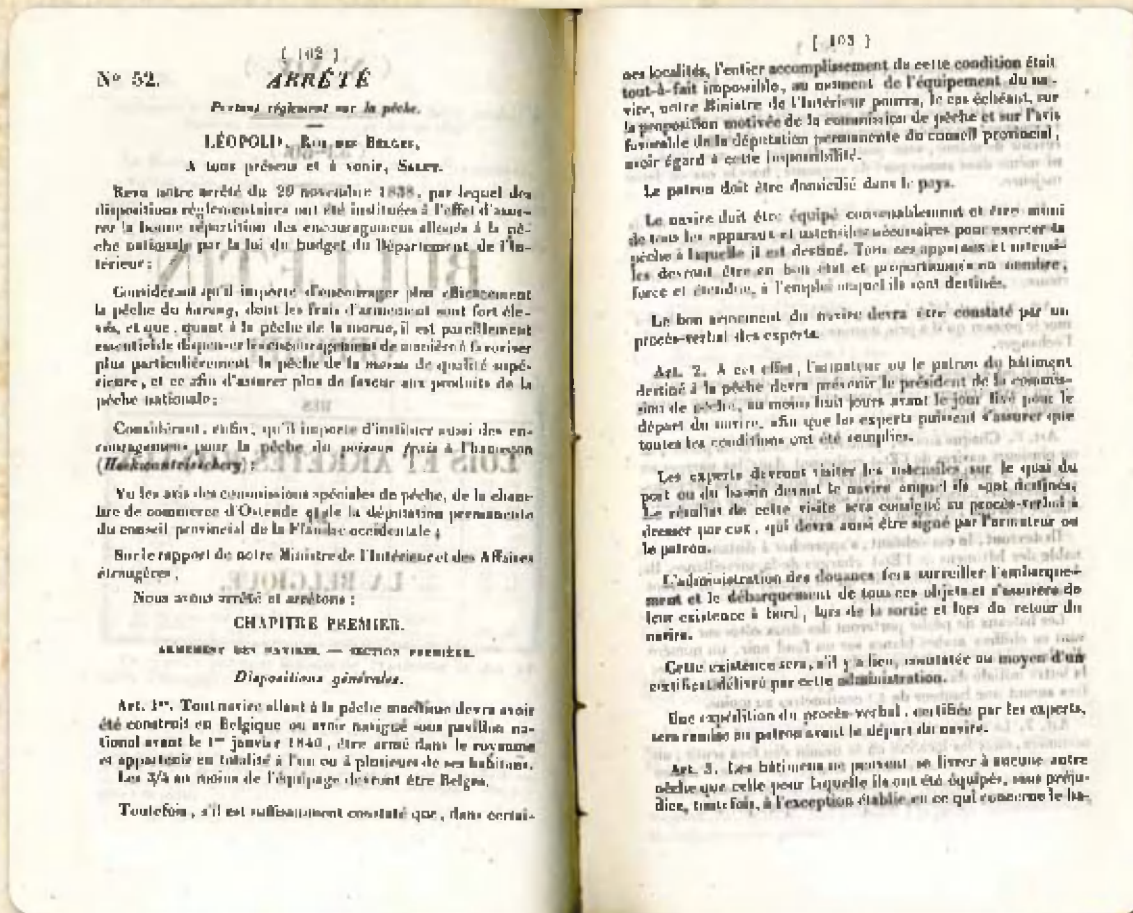 ( 102 )
N° 52. ARRÊTÉ
Portant réglement sur la pêche.
LÉOPOLD, ROI DES BELGES,
A tous présens et à venir, SALUT.
Revu notre arrêté du 29 novembre 1838, par lequel des
dispositions réglementaires ont été instituées à l'effet d'assu-
rer la bonne répartition des encouragemens alloués à la pê-
che nationale par la loi du budget du Département de l'In-
térieur;
Considérant qu'il importe d'encourager plus efficacement
la pêche du hareng, dont les frais d'armement sont fort éle-
vés, et que, quant à la pêche de la morue, il est pareillement
essentiel de dispenser les encouragemens de manière à favoriser
plus particulièrement la pêche de la morue de qualité supé-
rieure, et ce afin d'assurer plus de faveur aux produits de la
pêche nationale;
Considérant, enfin, qu'il importe d'instituer aussi des en-
couragemens pour la pêche du poisson frais à l'hameçon
(Hoekwantvisschery);
Vu les avis des commissions spéciales de pêche, de la cham-
bre de commerce d'Ostende et de la députation permanente
du conseil provincial de la Flandre occidentale;
Sur le rapport de notre Ministre de l'Intérieur et des Affaires
étrangères,
Nous avons arrêté et arrêtons :
CHAPITRE PREMIER.
ARMEMENT DES NAVIRES. — SECTION PREMIÈRE.
Dispositions générales.
Art. 1er. Tout navire allant à la pêche maritime devra avoir
été construit en Belgique ou avoir navigué sous pavillon na-
tional avant le 1er janvier 1840, être armé dans le royaume
et appartenir en totalité à l'un ou à plusieurs de ses habitans.
Les 3/4 au moins de l'équipage devront être Belges.
Toutefois, s'il est suffisamment constaté que, dans certai-
( 103 )
nes localités, l'entier accomplissement de cette condition était
tout-à-fait impossible, au moment de l'équipement du na-
vire, notre Ministre de l'Intérieur pourra, le cas échéant, sur
la proposition motivée de la commission de pêche et sur l'avis
favorable de la députation permanente du conseil provincial,
avoir égard à cette impossibilité.
Le patron doit être domicilié dans le pays.
Le navire doit être équipé convenablement et être muni
de tous les apparaux et ustensiles nécessaires pour exercer la
pêche à laquelle il est destiné. Tous ces apparaux et ustensi-
les devront être en bon état et proportionnés en nombre,
force et étendue, à l'emploi auquel ils sont destinés.
Le bon armement du navire devra être constaté par un
procès-verbal des experts.
Art. 2. A cet effet, l'armateur ou le patron du bâtiment
destiné à la pêche devra prévenir le président de la commis-
sion de pêche, au moins huit jours avant le jour fixé pour le
départ du navire, afin que les experts puissent s'assurer que
toutes les conditions ont été remplies.
Les experts devront visiter les ustensiles sur le quai du
port ou du bassin devant le navire auquel ils sont destinés.
Le résultat de cette visite sera consigné au procès-verbal à
dresser par eux, qui devra aussi être signé par l'armateur ou
le patron.
L'administration des douanes fera surveiller l'embarque-
ment et le débarquement de tous ces objets et s'assurera de
leur existence à bord, lors de la sortie et lors du retour du
navire.
Cette existence sera, s'il y a lieu, constatée au moyen d'un
certificat délivré par cette administration.
Une expédition du procès-verbal, certifiée par les experts,
sera remise au patron avant le départ du navire.
Art. 3. Les bâtimens ne peuvent se livrer à aucune autre
pêche que celle pour laquelle ils ont été équipés, sans préju-
dice, toutefois, à l'exception établie en ce qui concerne le ha-